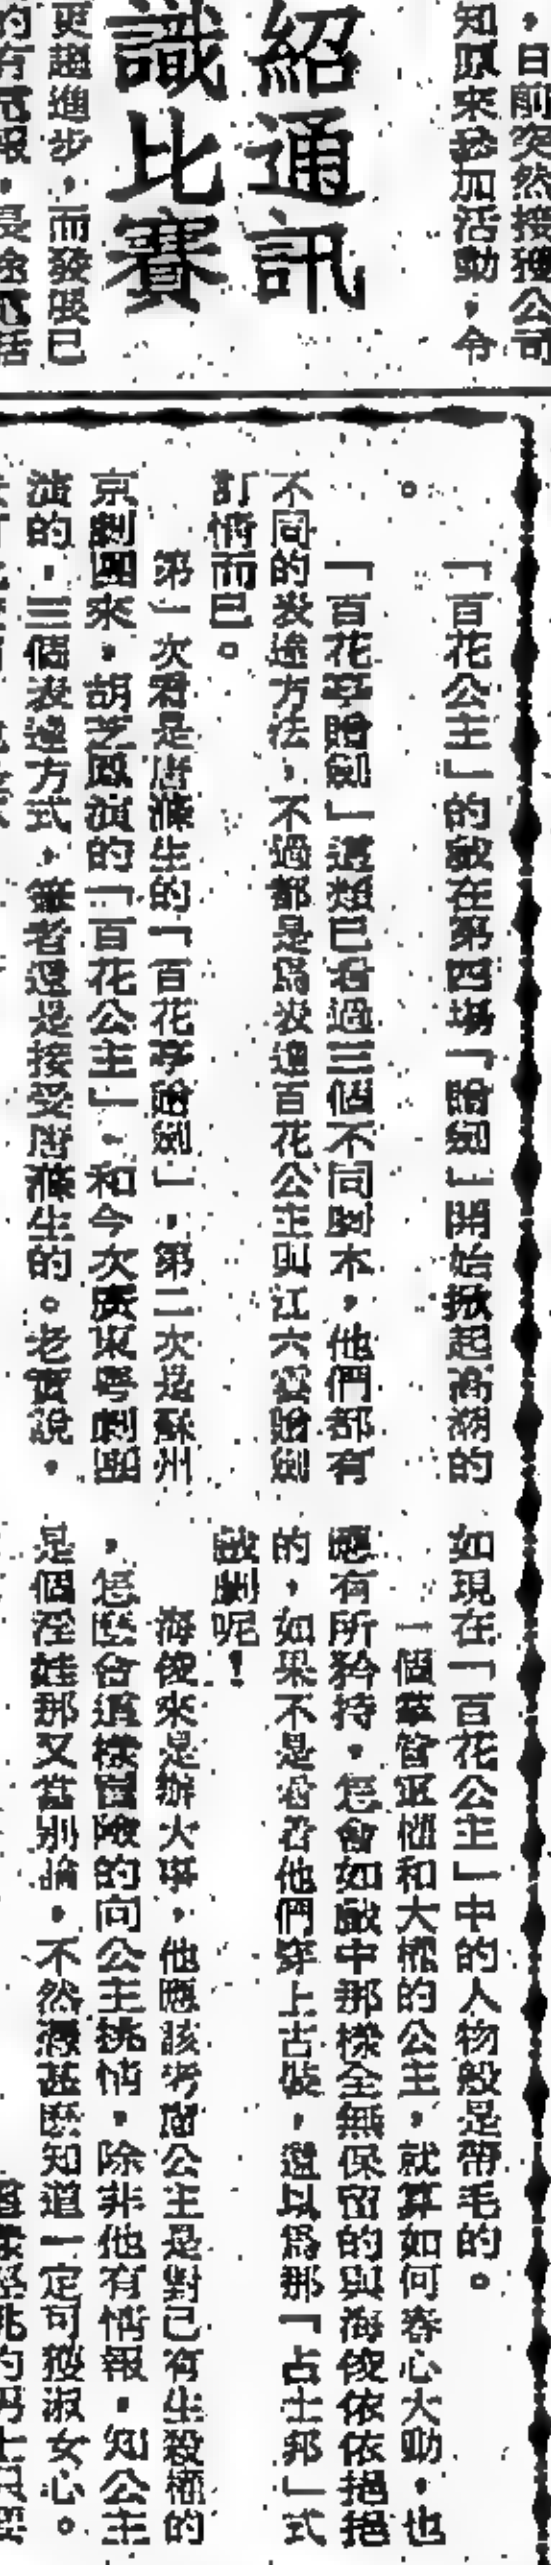 ，日前突然接獲公司
知原來參加活動，令
紹通訊
識比賽
更趨進步，而發展已
「百花公主」的戲在第四場「贈劍」開始掀起高潮的
。
「百花亭贈劍」這類已看過三個不同劇本，他們都有
不同的表達方法，不過都是爲表達百花公主與江六雲贈劍
訂情而已。
第一次看是唐滌生的「百花亭贈劍」，第二次是蘇州
京劇團來，胡芝鳳演的「百花公主」，和今次廣東粵劇團
演的，三個表達方式，筆者還是接受唐滌生的。老實說，
如現在「百花公主」中的人物般是帶毛的。
一個掌管軍權和大權的公主，就算如何春心大動，也
應有所矜持，怎會如戲中那樣全無保留的與海俊依依挹挹
的，如果不是看着他們穿上古裝，還以爲那「占士邦」式
戲劇呢！
海俊來是辦大事，他應該考慮公主是對己有生殺權的
，怎麽會這樣冒險的向公主挑情，除非他有情報，知公主
是個淫娃那又當別論，不然憑甚麽知道一定可獲淑女心。